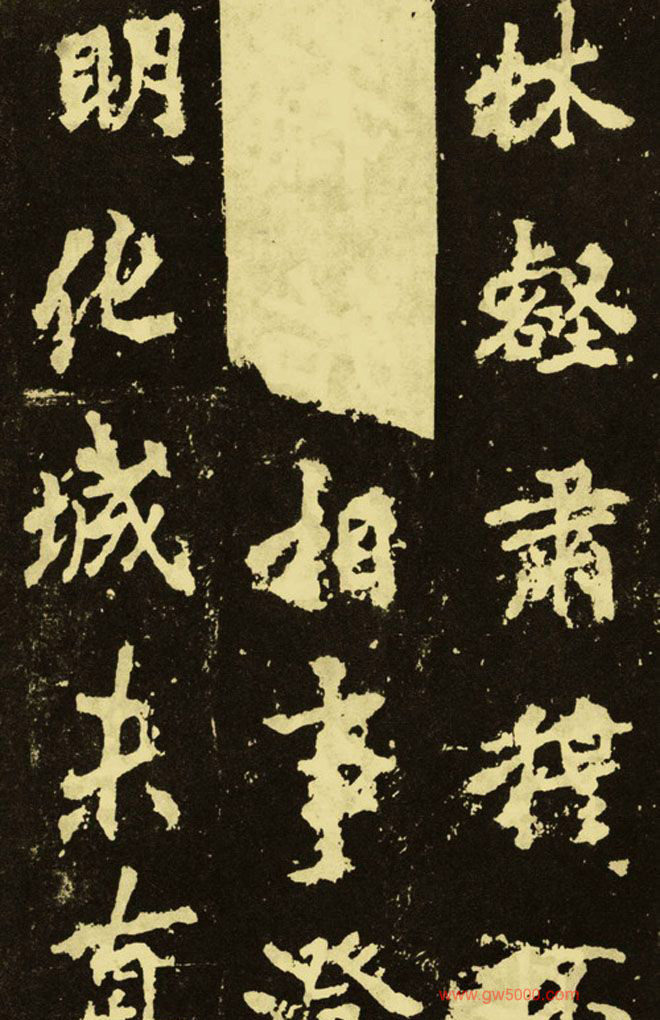 林壑肅穆
相事澄
明化城未
www.gw5000.com